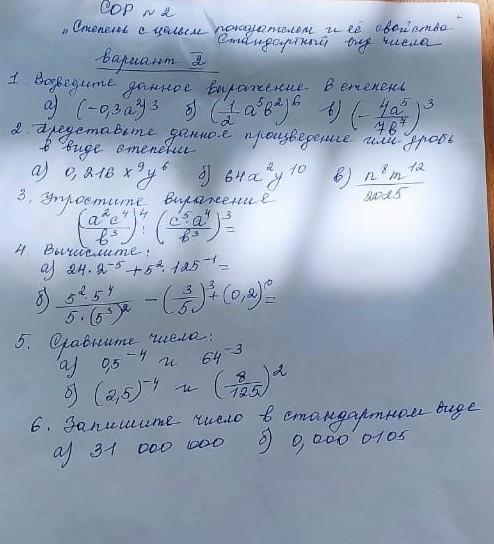 СОР №2
"Степень с целым показателем и её свойства"
Стандартный вид числа
вариант 2
1. Возведите данное выражение в степень
а) (-0,3a²)³ б) (1/2 a⁵b²)⁶ в) (-4a⁵/7b⁷)³
2. Представьте данное произведение или дробь
в виде степени
а) 0,216 x⁹y⁶ б) 64x²y¹⁰ в) n⁸m¹²/2025
3. Упростите выражение
(a²c⁴/b³)⁴ : (c⁵·a⁴/b³)³ =
4. Вычислите:
а) 24·2⁻⁵ + 5²·125⁻¹ =
б) 5²·5⁴/5·(5³)² - (3/5)³ + (0,2)⁰ =
5. Сравните числа:
а) 0,5⁻⁴ и 64⁻³
б) (2,5)⁻⁴ и (8/125)²
6. Запишите число в стандартном виде
а) 31 000 000 б) 0,000 0105